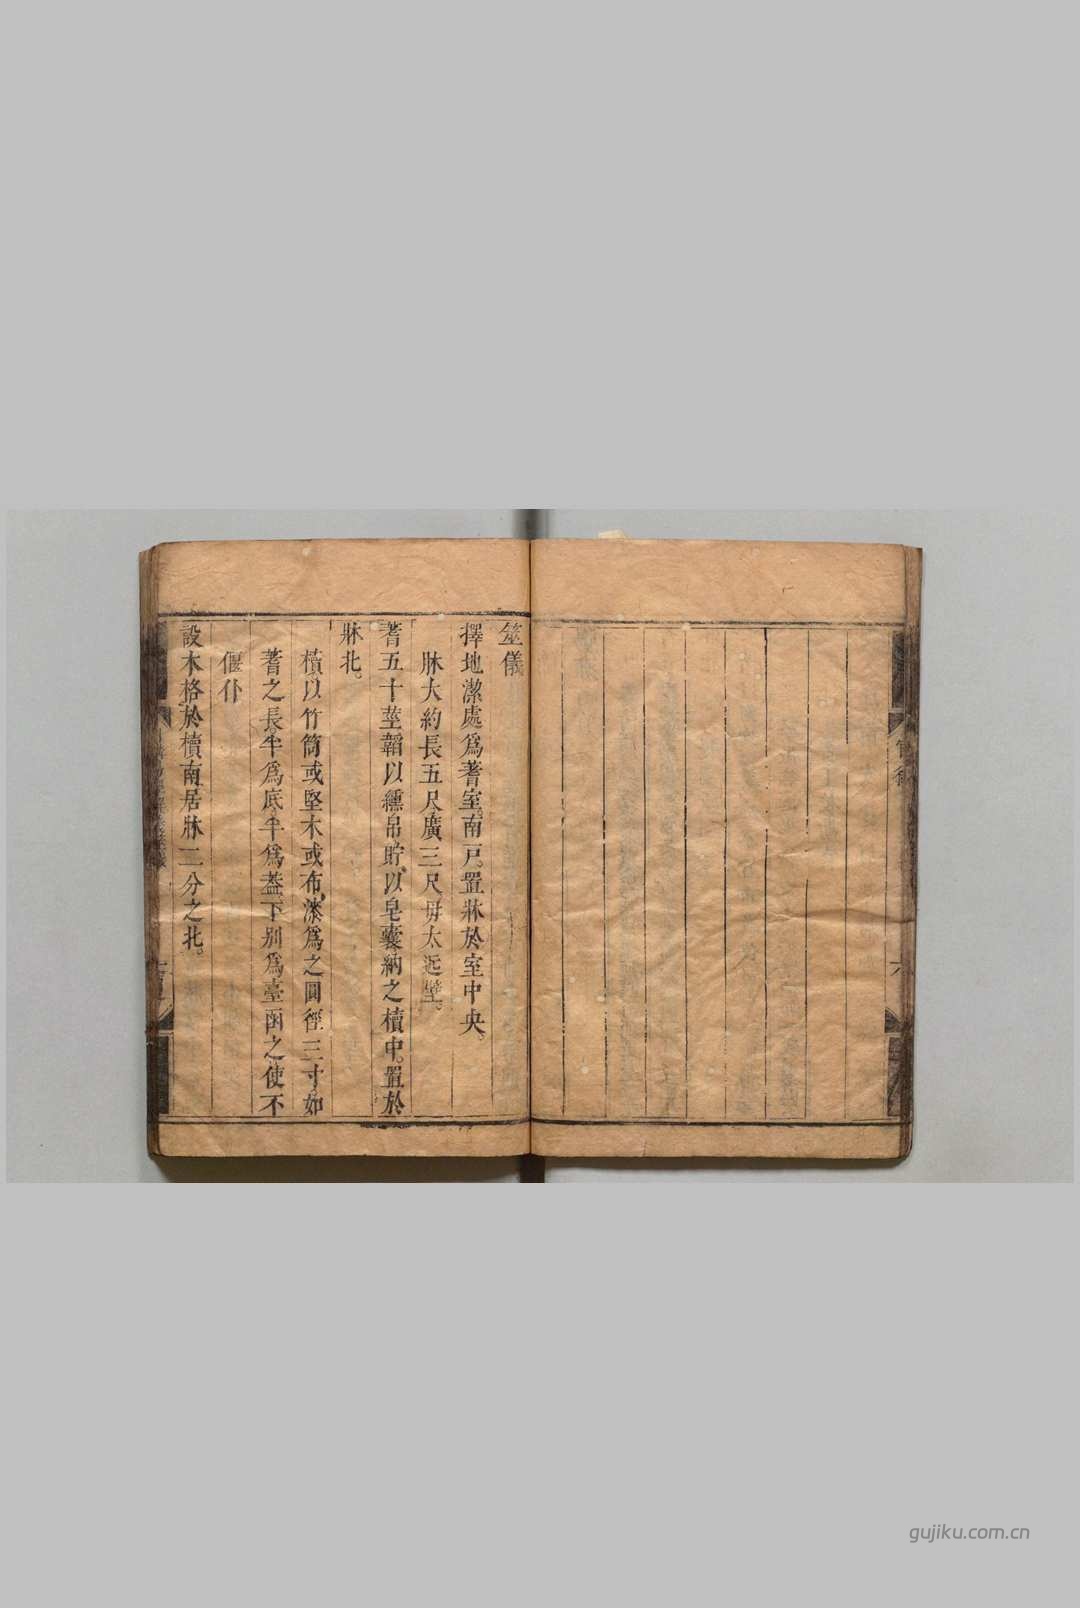 筮儀
擇地潔處爲蓍室。南戶。置牀於室中央。
牀大約長五尺廣三尺毋太近壁。
蓍五十莖韜以纁帛貯以皂囊納之櫝中。置於
牀北。
櫝以竹筒或堅木或布漆爲之圓徑三寸如
蓍之長半爲底半爲蓋下別爲臺函之使不
偃仆
設木格於櫝南居牀二分之北。
gujiku.com.cn